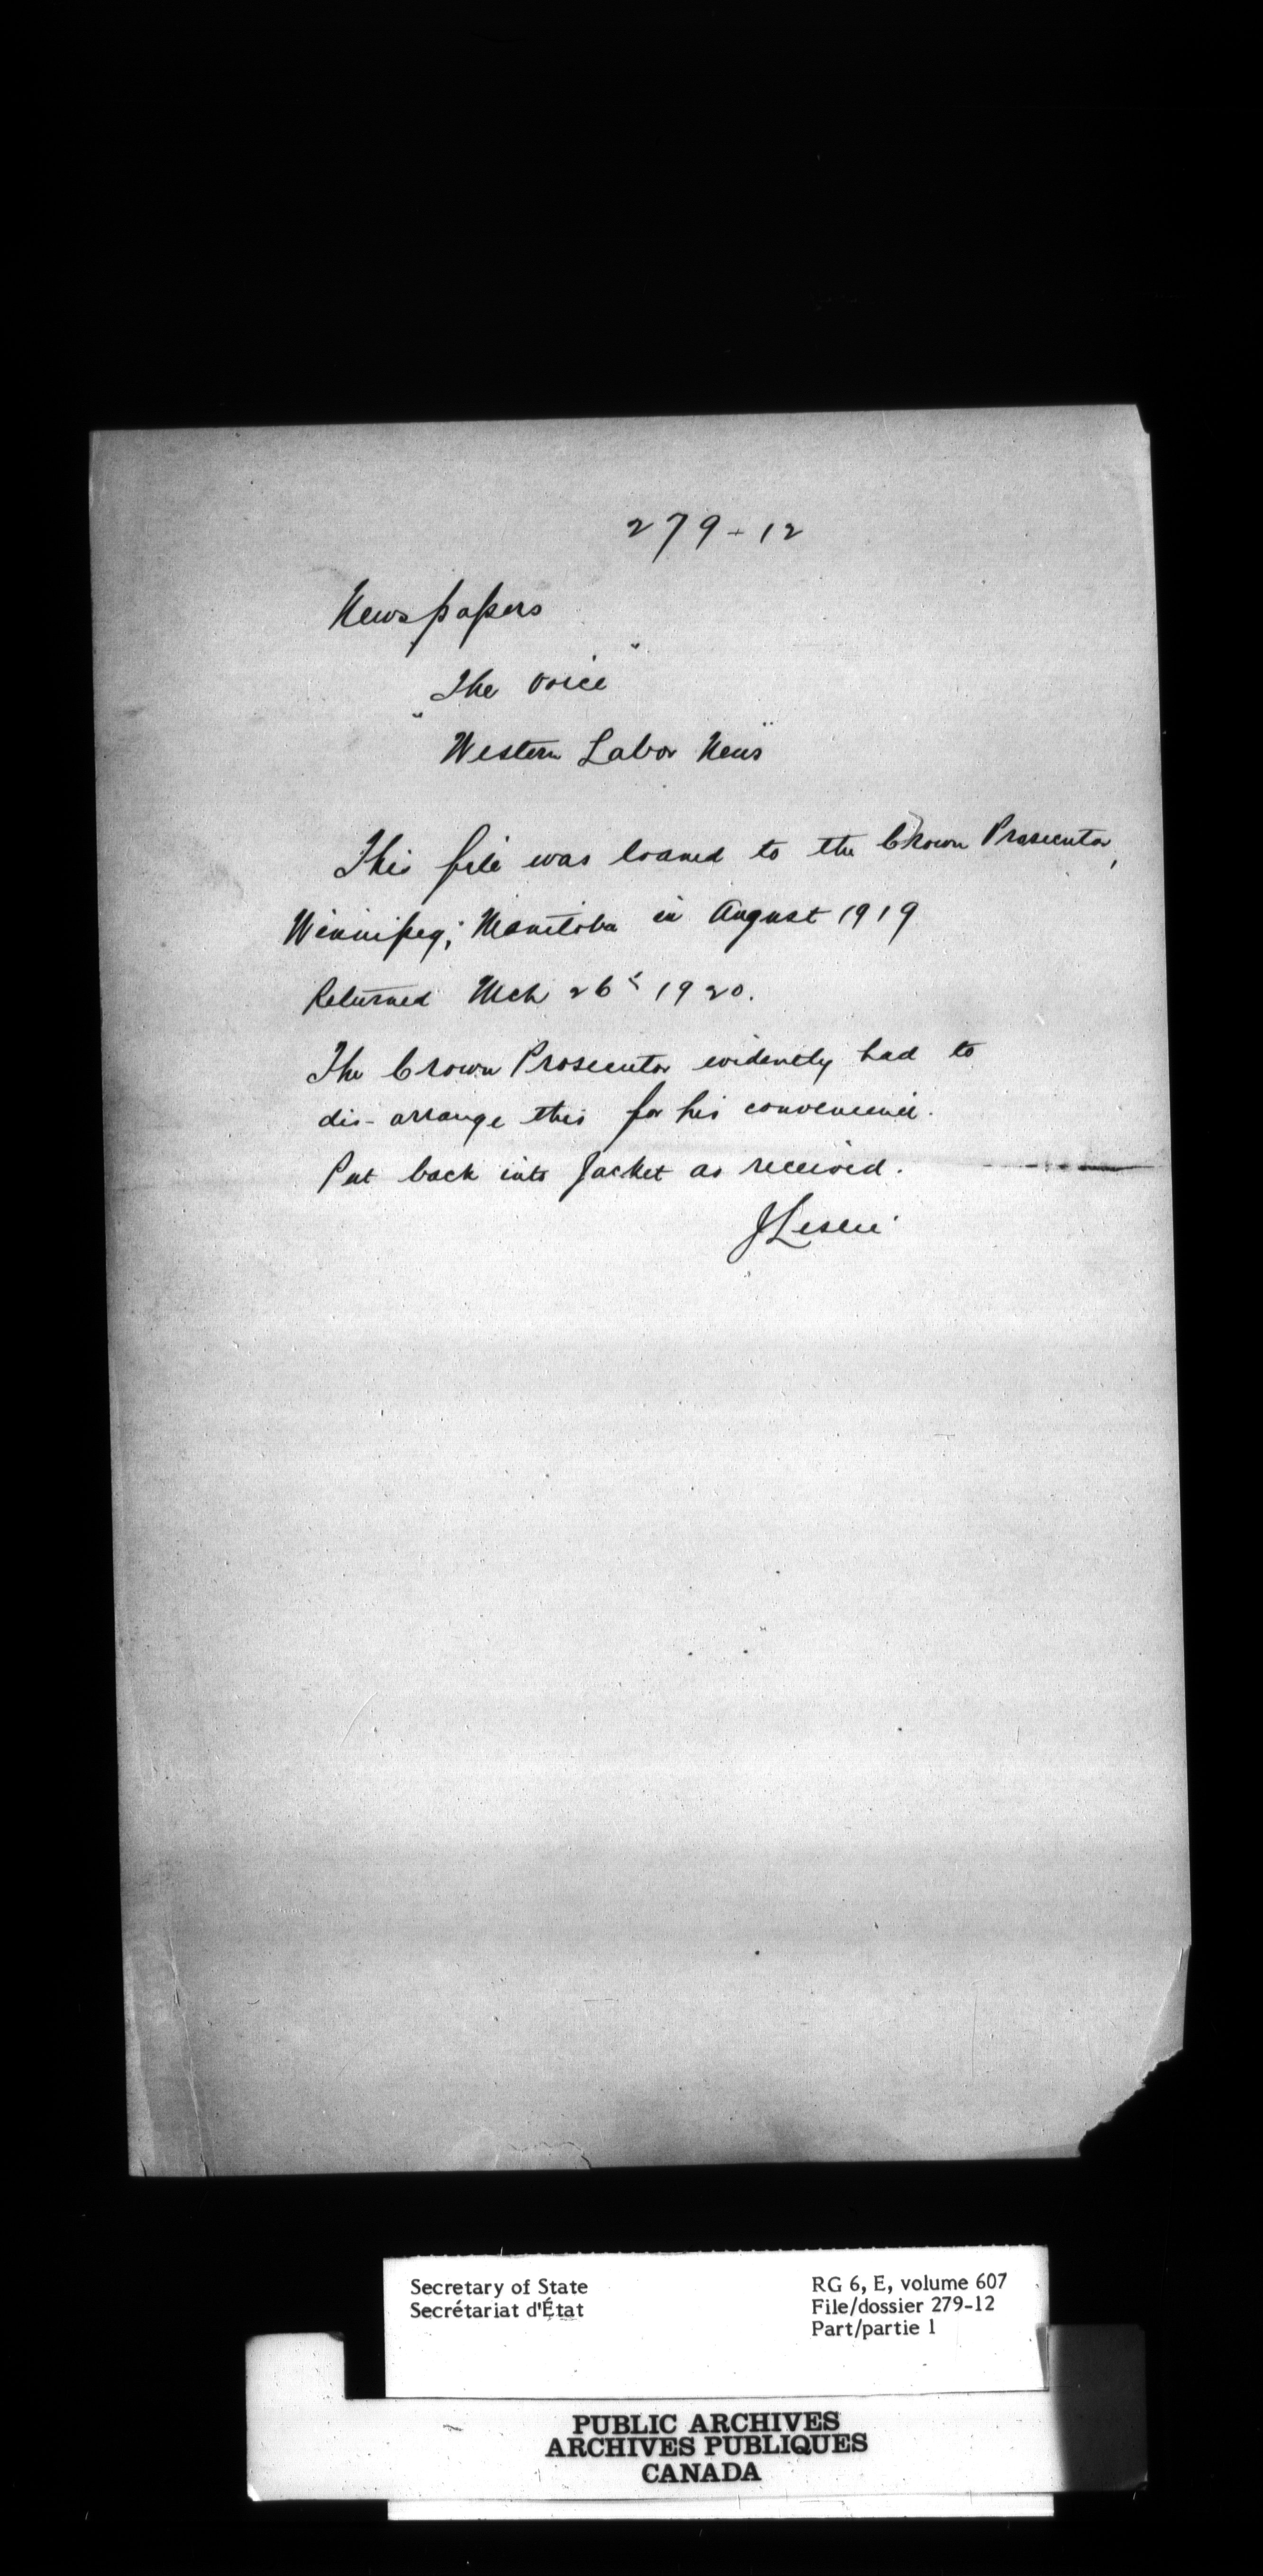 279-12
Newspapers
The Voice"
"Western Labor News"
This file was loaned to the Crown Prosecutor,
Winnipeg, Manitoba in August 1919
Returned Mch 26th 1920.
The Crown Prosecutor evidently had to
dis-arrange this for his convenience.
Put back into Jacket as received.
JLeslie
Secretary of State
Secrétariat d'État
RG 6, E, volume 607
File/dossier 279-12
Part/partie 1
PUBLIC ARCHIVES
ARCHIVES PUBLIQUES
CANADA